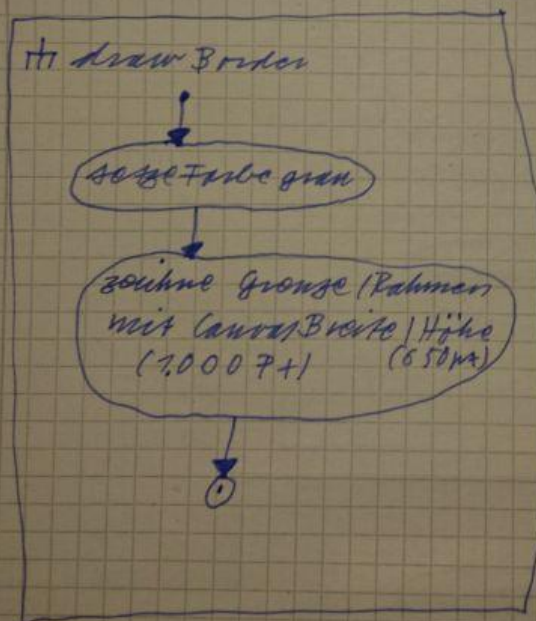 drawBorder
setze Farbe grau
zeichne Grenze/Rahmen
mit Canvas Breite/Höhe
(1.000 Pt) (650px)